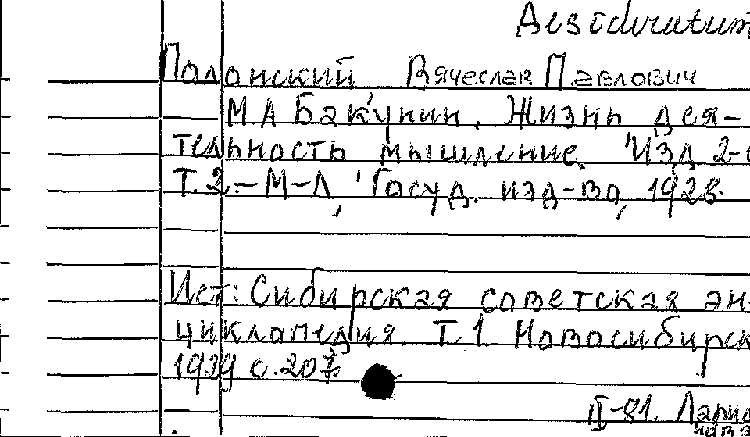 Desiderata
Полонский Вячеслав Павлович
М.А Бакунин. Жизнь дея-
тельность мышление. Изд 2-е
Т. 2. – М-Л, Госуд. изд-во, 1928.
Ист: Сибирская советская эн-
циклопедия. Т. 1. Новосибирск
1929 с. 207
II-81.